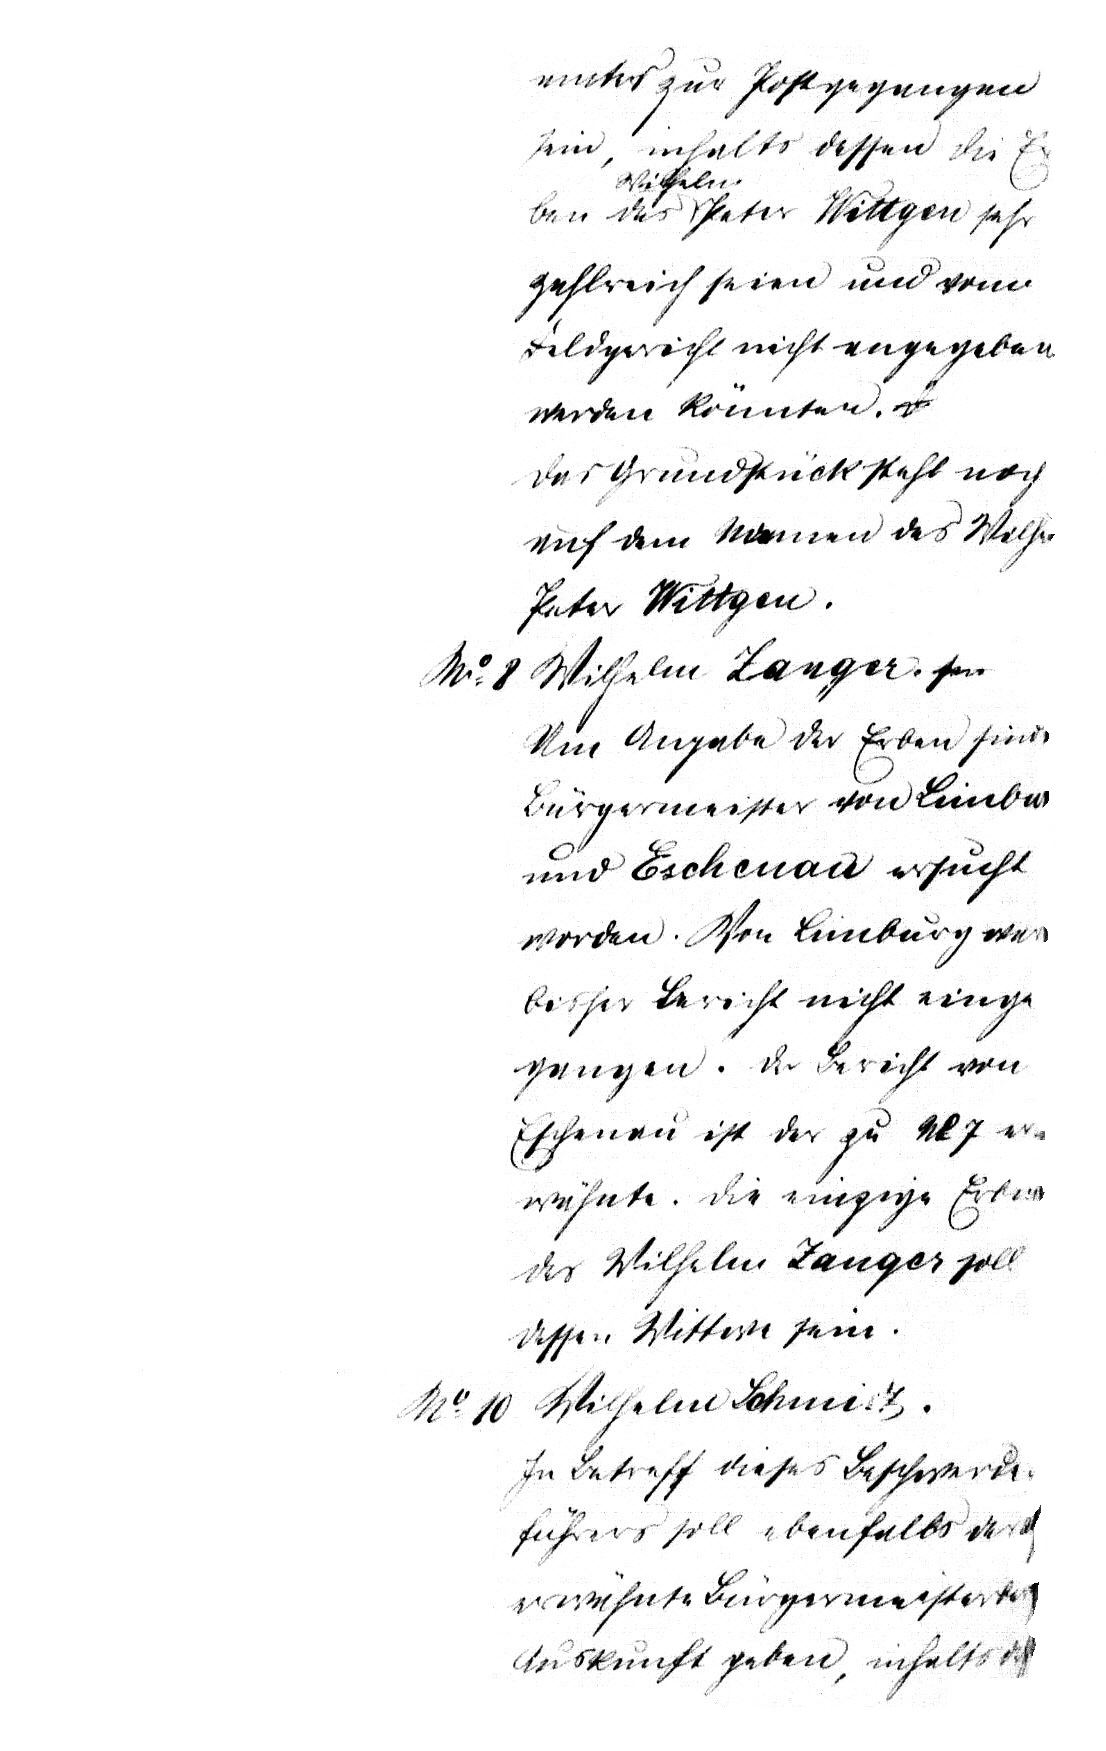 amtes zur Post gegangen
sein, inhalts dessen die Er
Wilhelm
ben des Peter Wittgen sehr
zahlreich seien und vom
Feldgericht nicht angegeben
werden könnten.
Das Grundstück steht noch
auf dem Namen des Wilhe
Peter Wittgen.
No. 8 Wilhelm Zanger. sen
Um Angabe der Erben sind
Bürgermeister von Limbu
und Eschenau ersucht
worden. Von Limburg war
bisher Bericht nicht einge
gangen. Der Bericht von
Eschenau ist der zu No 7 er
wähnte. Die einzige Erbin
des Wilhelm Zanger soll
dessen Wittwe sein.
No. 10 Wilhelm Schmidt.
In Betreff dieses Beschwerde-
führers soll ebenfalls der
erwähnte Bürgermeister
Auskunft geben, inhalts